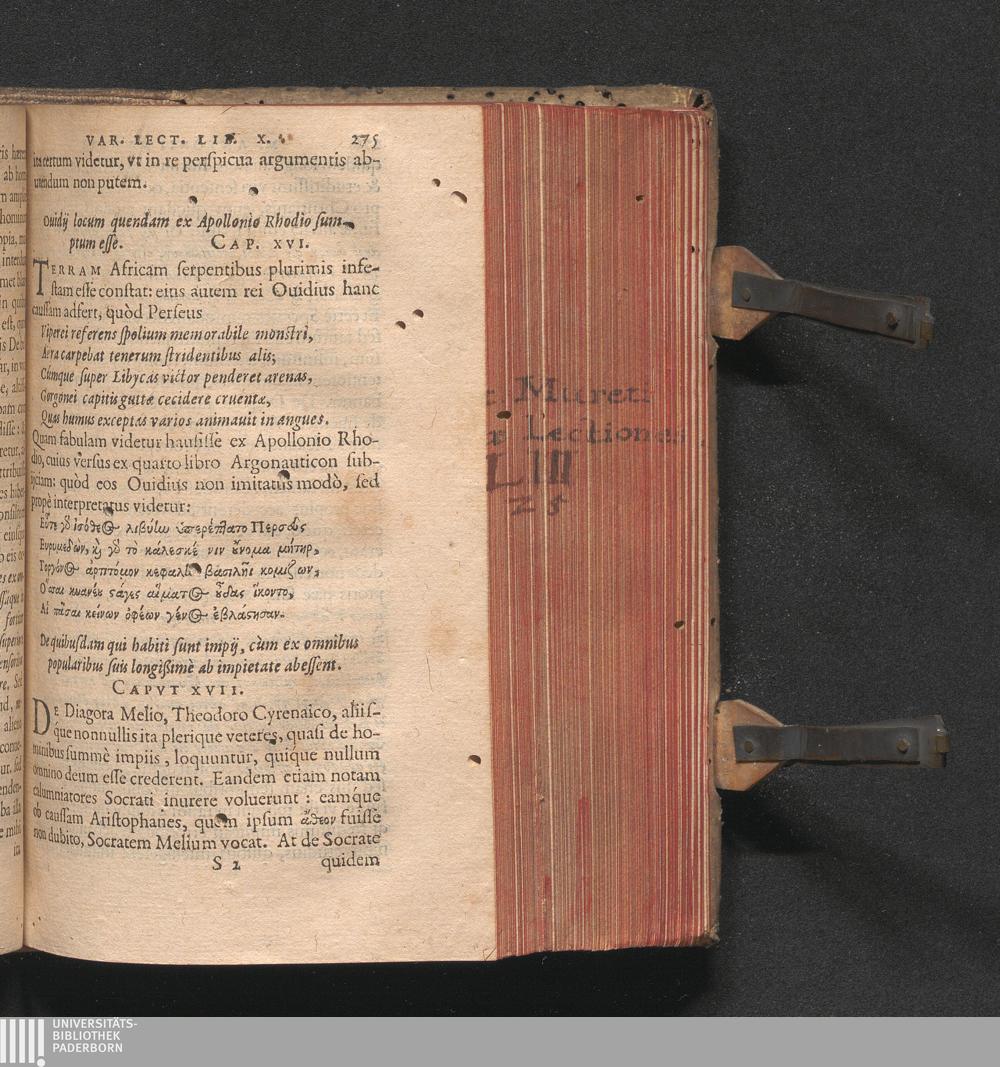 VAR. LECT. LIB. X. 275
ita certum videtur, vt in re perſpicua argumentis ab-
utendum non putem.
Ouidij locum quendam ex Apollonio Rhodio ſum-
ptum eſſe. CAP. XVI.
TERRAM Africam ſerpentibus plurimis infe-
ſtam eſſe conſtat: eius autem rei Ouidius hanc
cauſſam adfert, quòd Perſeus
Viperei referens ſpolium memorabile monſtri,
Aera carpebat tenerum ſtridentibus alis;
Cúmque ſuper Libycas victor penderet arenas,
Gorgonei capitis guttæ cecidere cruentæ,
Quas humus exceptas varios animauit in angues.
Quam fabulam videtur hauſiſſe ex Apollonio Rho-
dio, cuius verſus ex quarto libro Argonauticon ſub-
ijciam: quòd eos Ouidius non imitatus modò, ſed
propè interpretatus videtur:
Εὖτε γὰρ ἰσόθεος λιβύην ὑπερέπτατο Περσεὺς
Ευρυμέδων, καὶ γὰρ τὸ κάλεσκέ νιν οὔνομα μήτηρ,
Γοργόνος ἀρτίτομον κεφαλὴν βασιλῆι κομίζων,
Ὅσσαι κυανέου στάγες αἵματος οὖδας ἵκοντο,
Αἱ πᾶσαι κείνων ὀφέων γένος ἐβλάστησαν.
De quibuſdam qui habiti ſunt impij, cùm ex omnibus
popularibus ſuis longiſſimè ab impietate abeſſent.
CAPVT XVII.
DE Diagora Melio, Theodoro Cyrenaico, aliiſ-
que nonnullis ita plerique veteres, quaſi de ho-
minibus ſummè impiis, loquuntur, quique nullum
omnino deum eſſe crederent. Eandem etiam notam
calumniatores Socrati inurere voluerunt: eamque
ob cauſſam Ariſtophanes, quem ipſum ἄθεον fuiſſe
non dubito, Socratem Melium vocat. At de Socrate
S 2 quidem
Mureti
Lectiones
LIII
25
UNIVERSITÄTS-
BIBLIOTHEK
PADERBORN